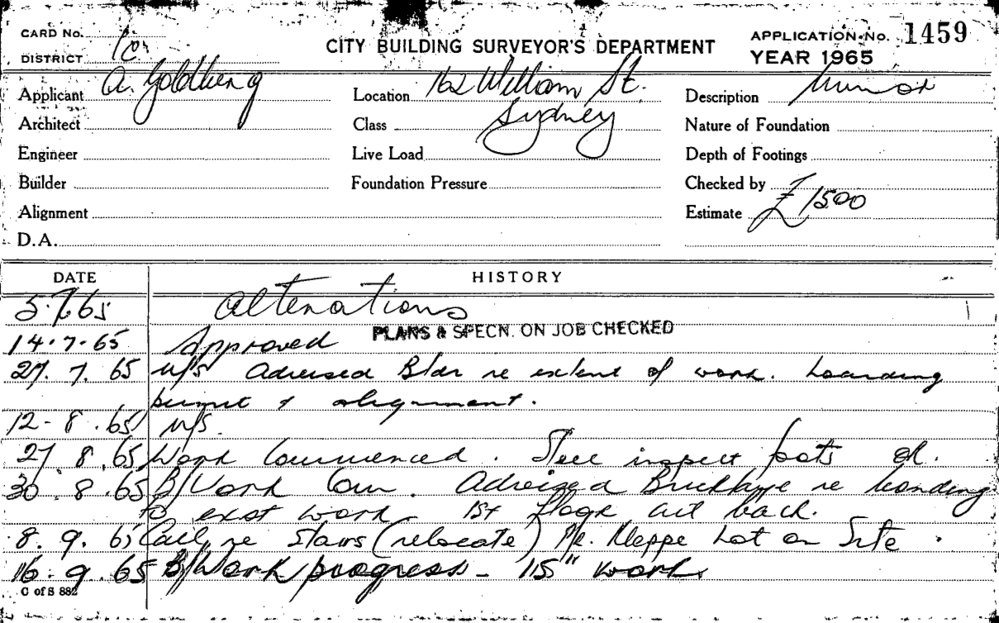 CARD No.
DISTRICT
CITY BUILDING SURVEYOR'S DEPARTMENT
APPLICATION No. 1459
YEAR 1965
Applicant A. Goldberg
Location 162 William St.
Description Minor
Architect
Class Sydney
Nature of Foundation
Engineer
Live Load
Depth of Footings
Builder
Foundation Pressure
Checked by
Alignment
Estimate £1500
D.A.
DATE HISTORY
5.7.65 Alterations
PLANS & SPECN. ON JOB CHECKED
14.7.65 Approved
27.7.65 n/s Advised Bldr re extent of work. Hoarding
permit & alignment.
12-8.65 n/s.
27.8.65 Work Commenced. Steel inspect
30.8.65 B/Work Com. Advised Bricklaye re bonding
to exist work 1st floor cut back.
8.9.65 Call re Stairs (relocate) Mr. Kleppe not on Site.
16.9.65 B/Work progress - 15" work
C of S 882